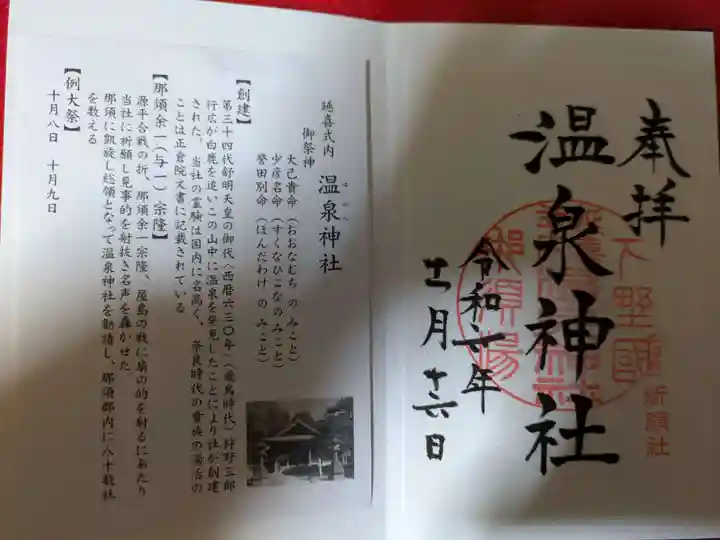 奉拝
温泉神社
令和六年
十一月十六日
下野國
祈願社
延喜式内 温泉神社
御祭神
大己貴命(おおなむちのみこと)
少彦名命(すくなひこなのみこと)
誉田別命(ほんだわけのみこと)
【創建】
第三十四代舒明天皇の御代(西暦六三〇年)(飛鳥時代)狩野三郎
行広が白鹿を追いこの山中に温泉を発見したことにより社が創建
された。当社の霊験は国内に名高く、奈良時代の貴族の湯治の
ことは正倉院文書に記載されている
【那須余一(与一)宗隆】
源平合戦の折、那須余一宗隆、屋島の戦に扇の的を射るにあたり
当社に祈願し見事的を射抜き名声を轟かせた
那須に凱旋し総領となって温泉神社を勧請し、那須郡内に八十数社
を数える
【例大祭】
十月八日 十月九日